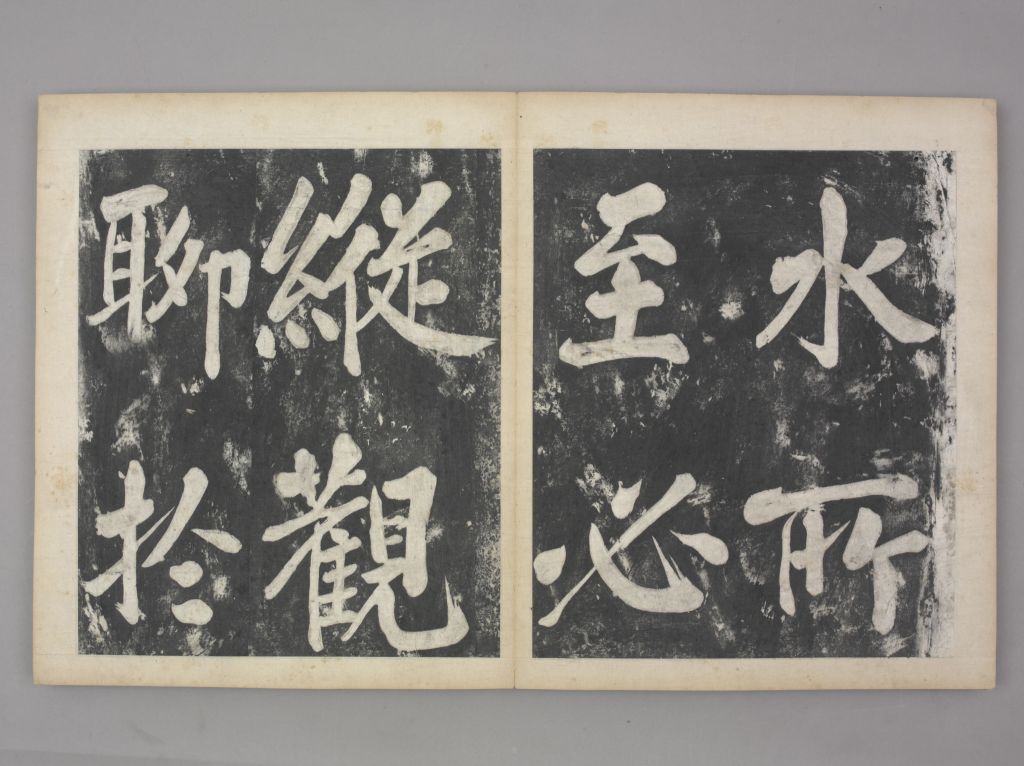 水所
至必
縱觀
聊於